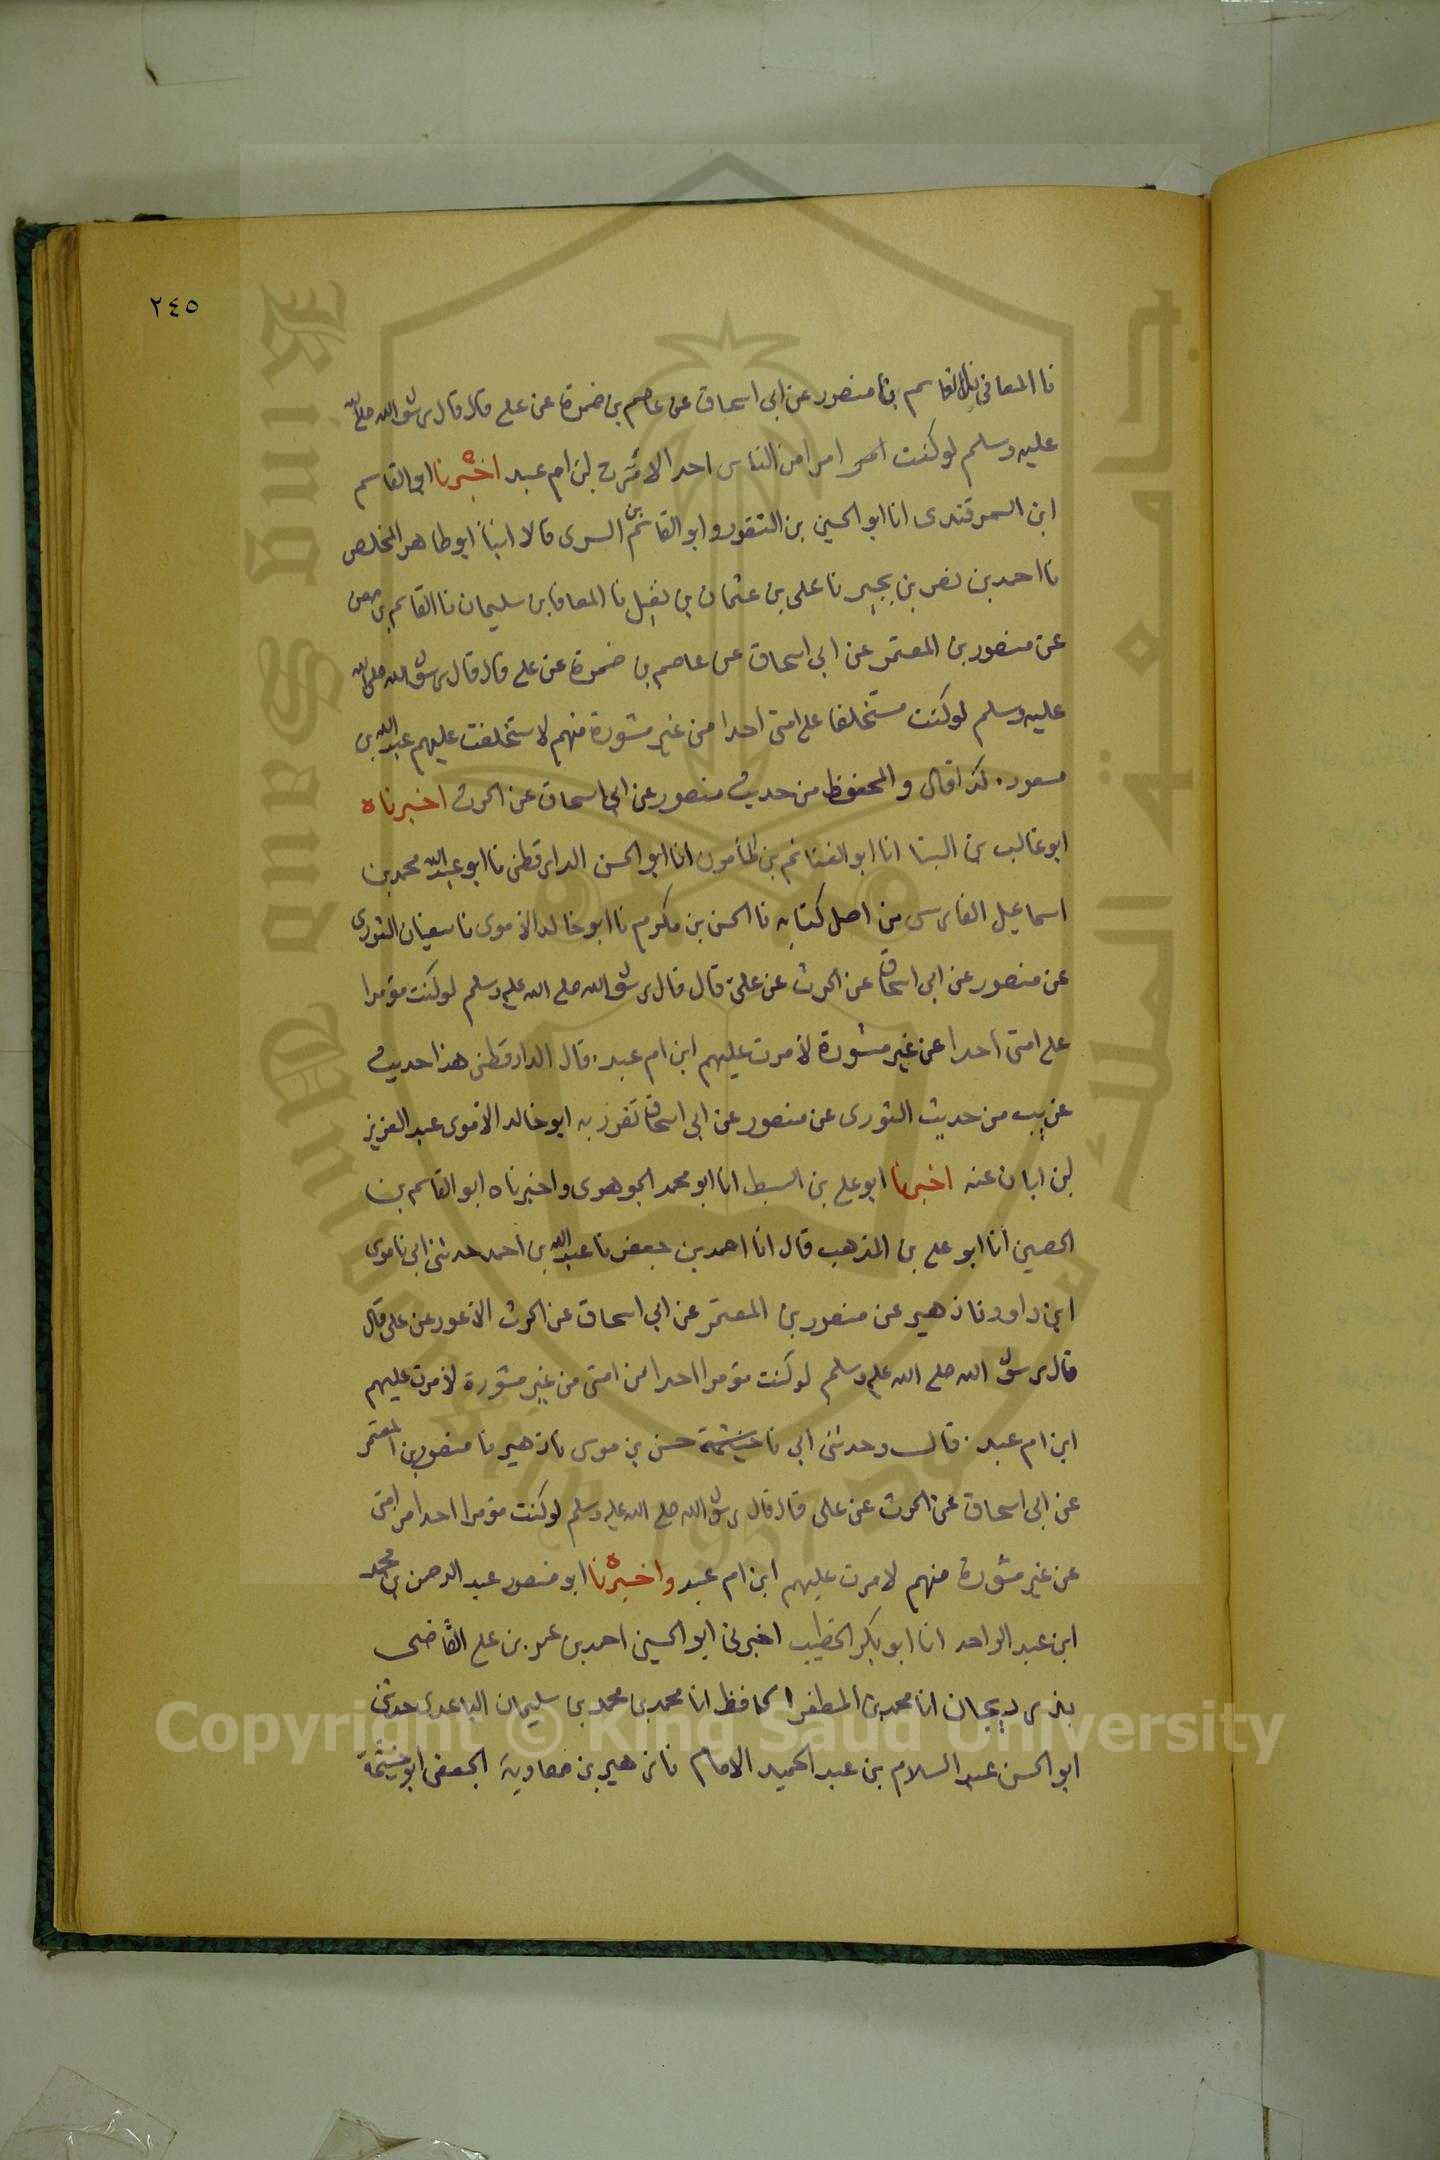 ٢٤٥
نا المعافى نا القاسم نا منصور عن ابى اسحاق عن عاصم بن ضمرة عن على قال قال رسول الله صلى الله
عليه وسلم لو كنت امرا من الناس احدا لامرت ابن ام عبد اخبرناه ابو القاسم
ابن السمرقندى انا ابو الحسين بن النقور وابو القاسم بن السرى قالا انبا ابو طاهر المخلص
نا احمد بن نصر بن بجير نا على بن عثمان بن نفيل نا المعافا بن سليمان نا القاسم بن معن
عن منصور بن المعتمر عن ابى اسحاق عن عاصم بن ضمرة عن على قال قال رسول الله صلى الله
عليه وسلم لو كنت مستخلفا على امتى احدا من غير مشورة منهم لاستخلفت عليهم عبد الله بن
مسعود . كذا قال والمحفوظ من حديث منصور عن ابى اسحاق عن الحرث اخبرناه
ابو غالب بن البنا انا ابو الغنائم بن المأمون انا ابو الحسن الدارقطنى نا ابو عبد الله محمد بن
اسماعيل الفارسى من اصل كتابه نا الحسن بن مكرم نا ابو خالد الاموى نا سفيان الثورى
عن منصور عن ابى اسحاق عن الحرث عن على قال قال رسول الله صلى الله عليه وسلم لو كنت مؤمرا
على امتى احدا عن غير مشورة لأمرت عليهم ابن ام عبد . قال الدارقطنى هذا حديث
غريب من حديث الثورى عن منصور عن ابى اسحاق تفرد به ابو خالد الاموى عبد العزيز
ابن ابان عنه اخبرنا ابو على بن السبط انا ابو محمد الجوهرى واخبرناه ابو القاسم بن
الحصين انا ابو على بن المذهب قال انا احمد بن جعفر نا عبد الله بن احمد حدثنى ابى نا موسى
ابن داود نا زهير عن منصور بن المعتمر عن ابى اسحاق عن الحرث الاعور عن على قال
قال رسول الله صلى الله عليه وسلم لو كنت مؤمرا احدا من امتى من غير مشورة لأمرت عليهم
ابن ام عبد . قال وحدثنى ابى نا خيثمة حسن بن موسى نا زهير نا منصور بن المعتمر
عن ابى اسحاق عن الحرث عن على قال قال رسول الله صلى الله عليه وسلم لو كنت مؤمرا احدا من امتى
عن غير مشورة منهم لامرت عليهم ابن ام عبد واخبرناه ابو منصور عبد الرحمن بن محمد
ابن عبد الواحد انا ابو بكر الخطيب اخبرنى ابو الحسين احمد بن عمر بن على القاضى
بدرزيجان انا محمد بن المظفر الحافظ انا محمد بن محمد بن سليمان الباغندى حدثنى
ابو الحسن عبد السلام بن عبد الحميد الامام نا زهير بن معاوية الجعفى ابو خيثمة
Copyright © King Saud University
King Saud University
جامعة الملك سعود
1957